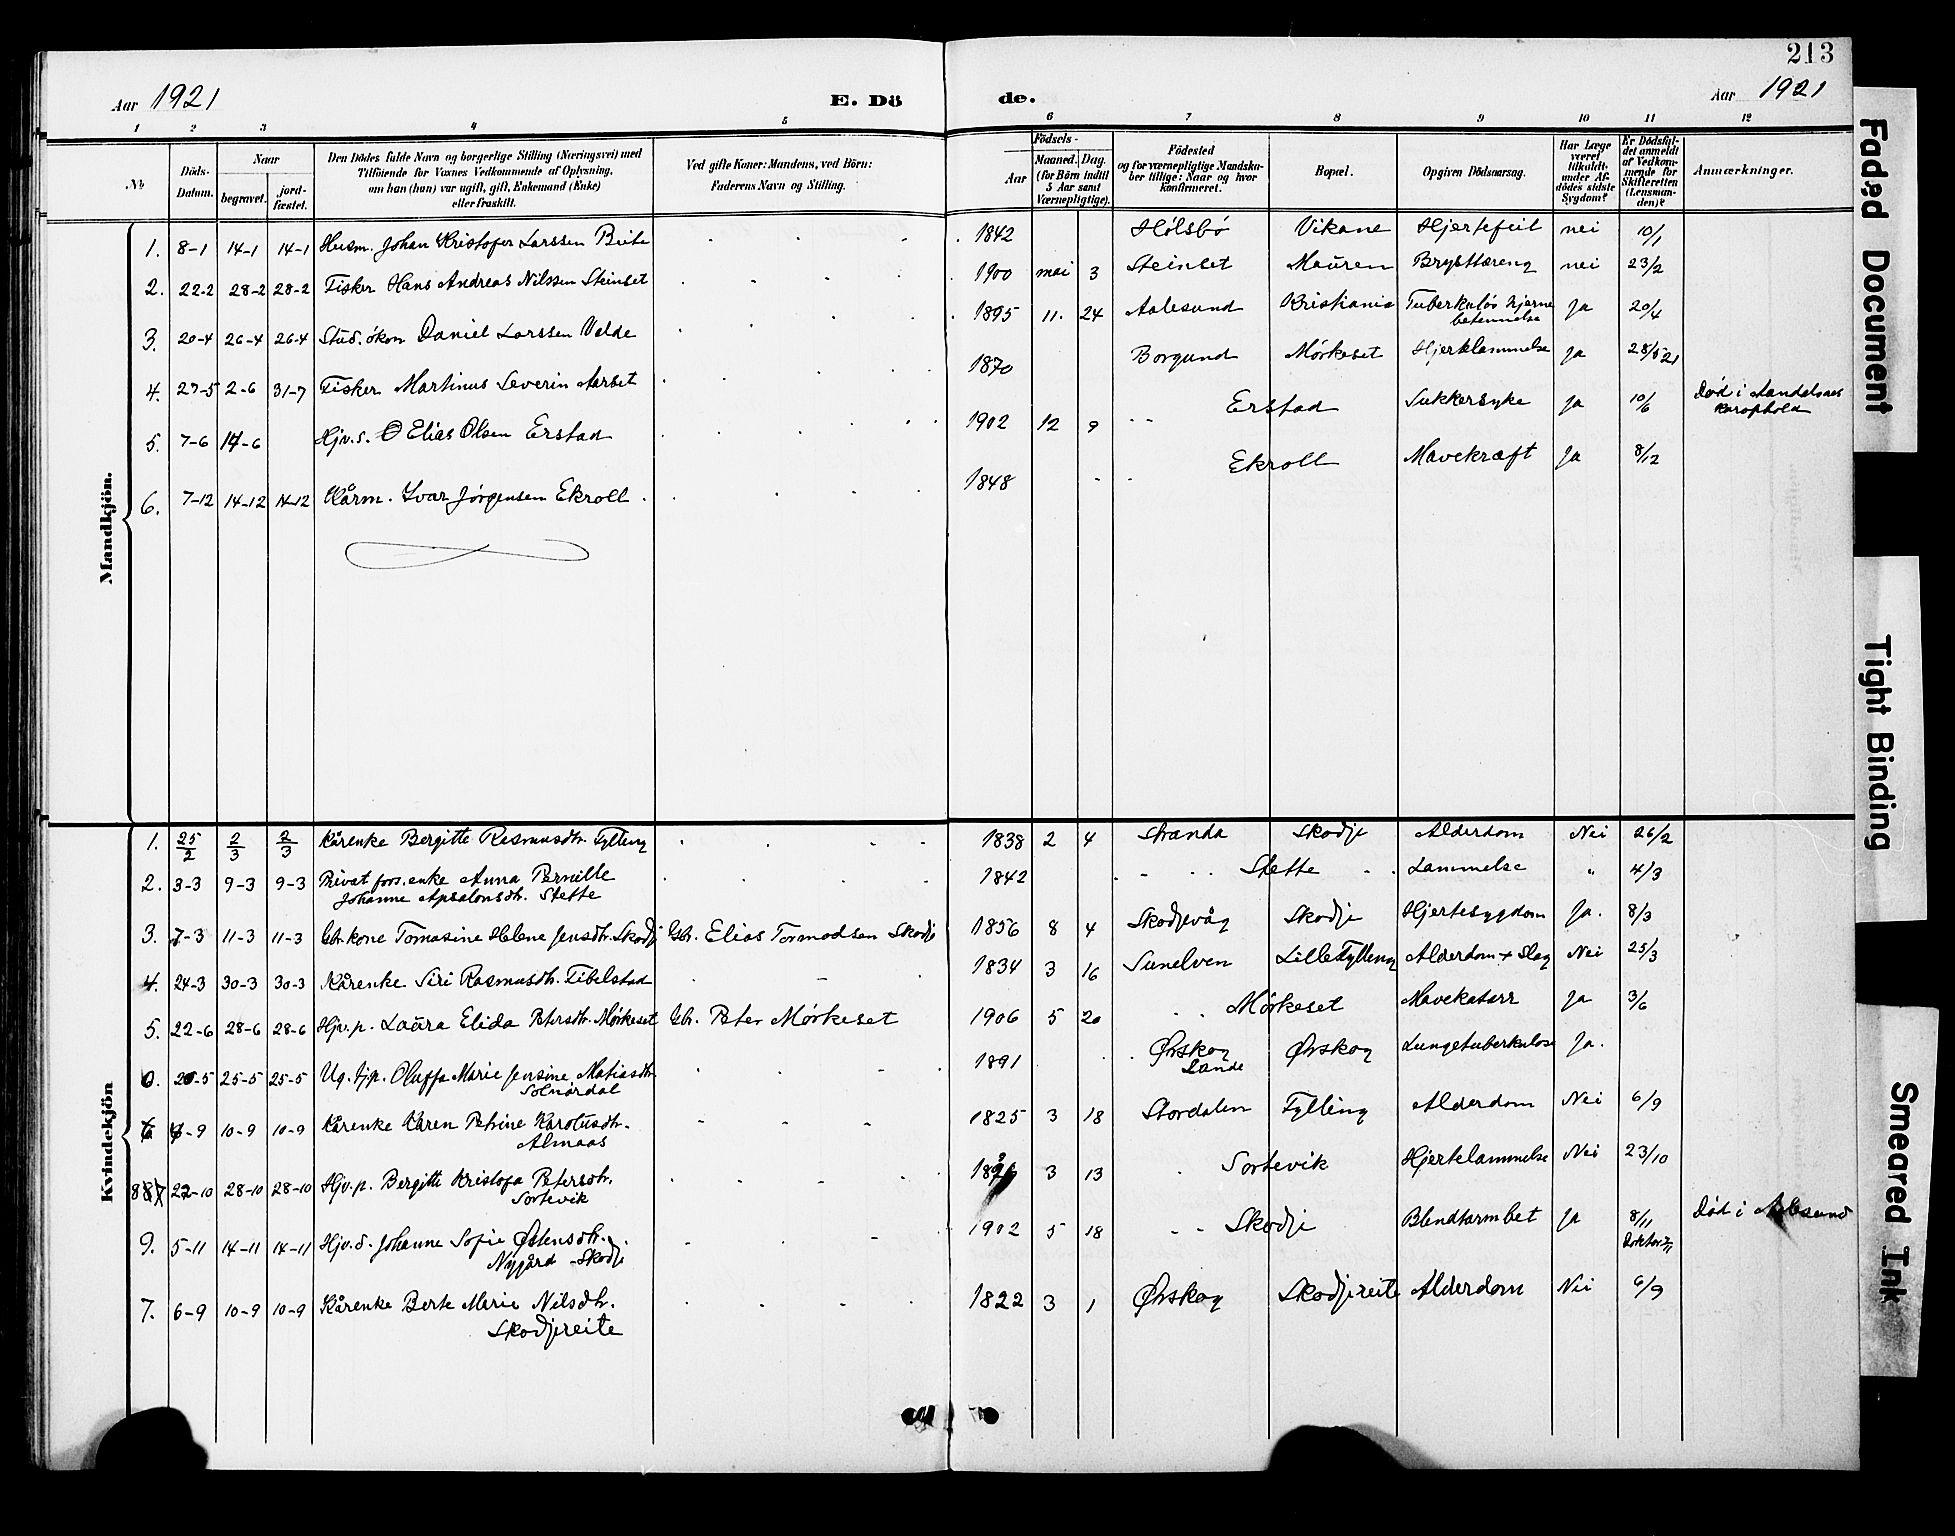 213
Aar 1921 E. Dö de. Aar 1921
1 2 3 4 5 6 7 8 9 10 11 12
No
Döds-Datum.
Naar
begravet. jord-fæstet.
Den Dödes fulde Navn og borgerlige Stilling (Næringsvei) med
Tilföiende for Voxnes Vedkommende af Oplysning,
om han (hun) var ugift, gift, Enkemand (Enke)
eller fraskilt.
Ved gifte Koner: Mandens, ved Börn:
Faderens Navn og Stilling.
Födsels-
Aar
Maaned. Dag.
(for Börn indtil
5 Aar samt
Værnepligtige).
Födested
og for værnepligtige Mandska-
ber tillige: Naar og hvor
konfirmeret.
Bopæl.
Opgiven Dödsaarsag.
Har Læge
været
tilkaldt
under Af-
dödes sidste
Sygdom?
Er Dödsfal-
det anmeldt
af Vedkom-
mende for
Skifteretten
(Lensman-
den)?
Anmærkninger.
Mandkjön.
1. 8-1 14-1 14-1 Husm. Johan Kristofer Larssen 1842 Hølsbø Vikane Hjertefeil nei 10/1
2. 22-2 28-2 28-2 Fisker Hans Andreas Nilssen Steinset 1900 mai 3 Steinset Mauren Brysttæring nei 23/2
3. 20-4 26-4 26-4 Stud. økon Daniel Larssen Valde 1895 11. 24 Aalesund Kristiania Tuberkuløs hjerne ja 20/4
betennelse
4. 27-5 2-6 31-7 Fisker Martinus Severin Aarset 1870 Borgund Mørkeset Hjertelammelse ja 28/5 21
5. 7-6 14-6 Hjv.s. O Elias Olsen Erstad 1902 12 9 - - Erstad Sukkersyke ja 10/6 Død i
6. 7-12 14-12 14-12 Kårm. Ivar Jørgensen Ekroll 1848 - - Ekroll Mavekræft ja 8/12
Kvindekjön
1. 25/2 2/3 2/3 Kårenke Bergitte Rasmusdtr. Fylling 1838 2 4 Stranda Skodje Alderdom Nei 26/2
2. 3-3 9-3 9-3 Privat fors. enke Anna Pernille 1842 - - Stette Lammelse " 4/3
Johanne Apsalonsdtr. Stette
3. 7-3 11-3 11-3 Gbr. kone Tomasine Helene Jensdtr. Skodje Gbr. Elias Tormodsen Skodje 1856 8 4 Skodjevåg Skodje Hjertesygdom Ja. 8/3
4. 24-3 30-3 30-3 Kårenke Siri Rasmusdtr. Fibelstad 1834 3 16 Sunelven Lille Fylling Alderdom + Slag Nei 25/3
5. 22-6 28-6 28-6 Hjv. p. Laura Elida Petersdtr. Mørkeset Gbr. Peter Mørkeset 1906 5 20 - - Mørkeset Mavekatarr Ja 3/6
6. 20-5 25-5 25-5 Ug. tj.p. Oluffa Marie Jensine Matiasdtr. 1891 Ørskog Ørskog Lungetuberkulose Ja.
Solnørdal Lande
6 6-9 10-9 10-9 Kårenke Karen Petrine Karolusdtr. 1825 3 18 Stordalen Fylling Alderdom Nei 6/9
Almaas
8 22-10 28-10 28-10 Hjv. p. Bergitte Kristofa Petersdtr. 3 13 Sortevik Hjertelammelse Nei 23/10
Sortevik
9. 5-11 14-11 14-11 Hjv. d. Johanne Sofie Østensdtr. 1902 5 18 - - Skodje Blendtarmbet Ja 8/11 Død i Aalesund
Nygård - Skodje Doktor 7/11
7. 6-9 10-9 10-9 Kårenke Berte Marie Nilsdtr. 1822 3 1 Ørskog Skodjereite Alderdom Nei 6/9
Skodjereite
Faded Document
Tight Binding
Smeared Ink